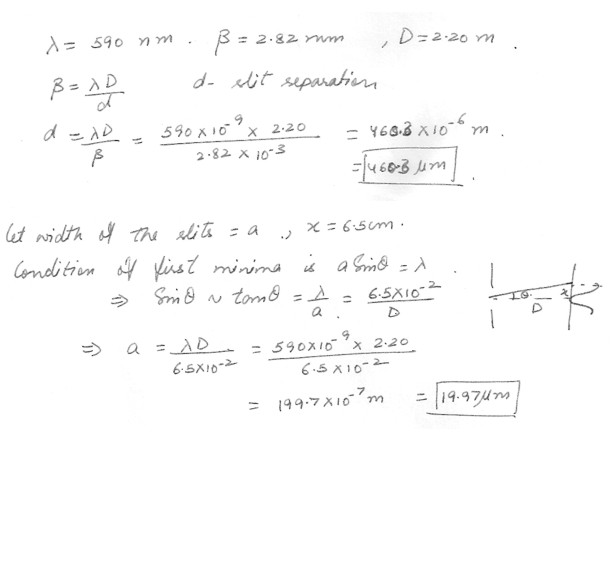 λ = 590 nm . β = 2.82 mm , D = 2.20 m .
β = λD/d d - slit separation
d = λD/β = 590 x 10^-9 x 2.20 / 2.82 x 10^-3 = 460.3 x 10^-6 m .
= 460.3 μm .
let width of the slits = a ., x = 6.5cm .
Condition of first minima is a Sinθ = λ .
⇒ Sinθ ~ tanθ = λ/a = 6.5x10^-2/D
θ x D
⇒ a = λD/6.5x10^-2 = 590x10^-9 x 2.20 / 6.5 x 10^-2
= 199.7 x 10^-7 m = 19.97 μm